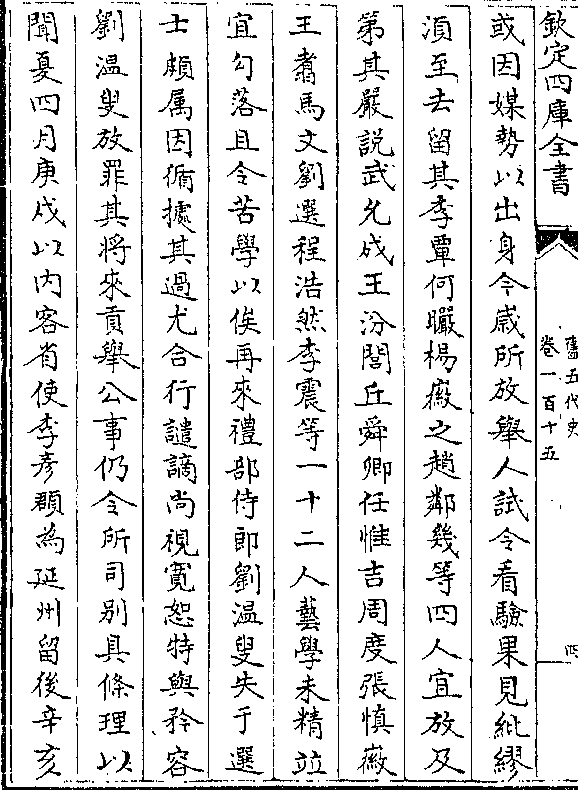 欽定四庫全書
舊五代史
卷一百十五
四
或因媒勢以出身今歳所放舉人試令看驗果見紕繆
湏至去留其李覃何曮楊徽之趙鄰幾等四人宜放及
第其嚴説武允成王汾閭丘舜卿任惟吉周度張慎徽
王翥馬文劉選程浩然李震等一十二人藝學未精並
宜勾落且令苦學以俟再來禮部侍郎劉温叟失于選
士頗属因循據其過尤合行譴謫尚視寛恕特與矜容
劉温叟放罪其將來貢舉公事仍令所司别具條理以
聞夏四月庚戍以内客省使李彦頵為延州留後辛亥